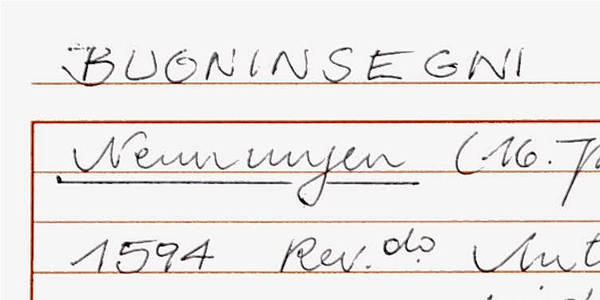 BUONINSEGNI
Nennungen (16.
1594 Rev.do